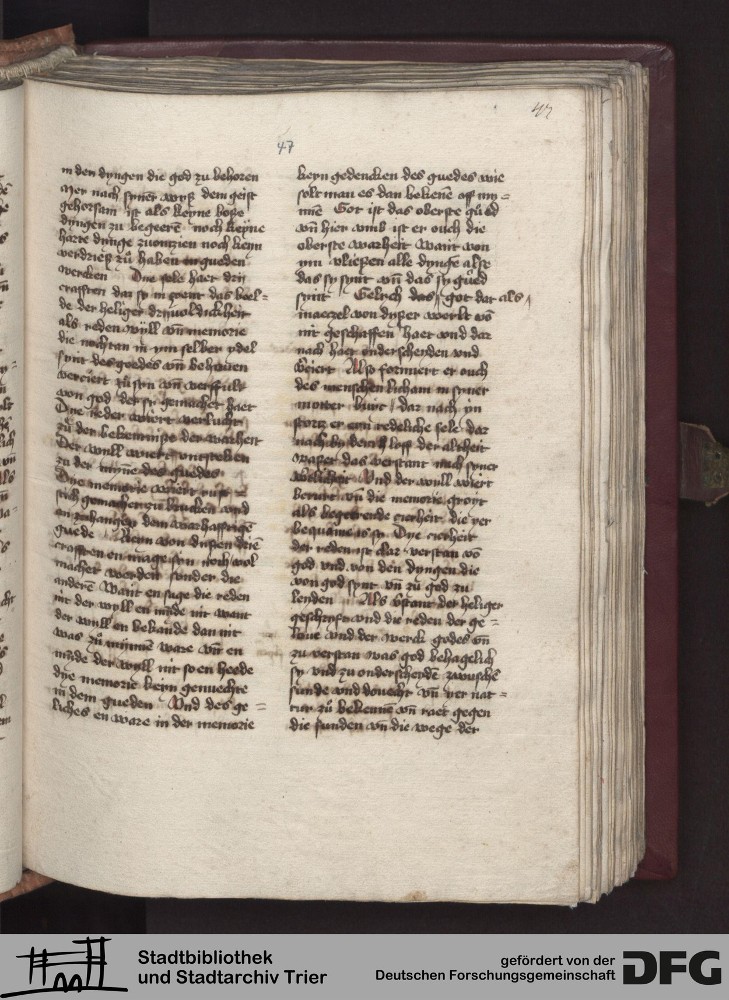 47
47
in den dyngen die god zu behoren
Mer nach syner wyß dem geist
gehorsam ist als keyne boße
dyngen zu begeren noch keyne
harte dynge zuontzien noch keyn
verdrieß zů haben in gueden
wercken Die sele haer dry
crafften dar sy in
de der heliger dryuoldicheit
als reden wyll vnd memorie
die nochtan in ym selber ydel
synt des goedes vnd behouen
verciert zů syn vnd verfult
von god der sy gemachet haet
Die reder wiert verlucht
zů der bekentniße der warheit
Der wyll wiert
zu der mynne des guedes
Die memorie wiert
gemachet zů vnd
an zuhangen dem warhafftigē
guede Keyn von dusen drien
crafften en mage syn noch vol
machet werden sonder die
anderē Want en suge die reden
nit der wyll en mīde nit want
der wyll en bekande dan nit
was zů mynnen ware vnd en
mīde der wyll nit so en heede
dye memorie keyn genuechte
in dem gueden Vnd des ge=
liches en ware in der memorie
keyn gedencken des guedes wie
solt man es dan bekenē off my=
nnē Got ist das oberste gůed
vn̄ hier vmb ist er ouch die
oberste warheit Want von
ym vließen alle dynge alse
das sy synt vn̄ das sy gůed
synt Gelych das got dat als
von dyßer werlt
nit geschaffen haet vnd dar
nach haet onderscheyden vnd
ēciert Also formiert er ouch
des menschen licham in syner
moder dar nach yn
er eyn redeliche sele dar
nach loff der altheit
das verstant nach syner
Vnd der wyll wiert
vn̄ die memorie
als begerende cierheit die yer
bequame is sy Dye cierheit
der reden ist clar verstan vō
god vnd von den dyngen die
von god synt vn̄ zů god zu
leyden Als v̄stant der heliger
geschrifft vnd die reden der ge=
loue vnd der werck godes vn̄
zu verstan was god behagelich
sy vnd zu onderscheydē zwuschē
sunde vnd douecht vn̄ yer nat=
tur zů bekennē vn̄ raet gegen
die sunden vn̄ die wege der
Stadtbibliothek
und Stadtarchiv Trier
gefördert von der
Deutschen Forschungsgemeinschaft
DFG